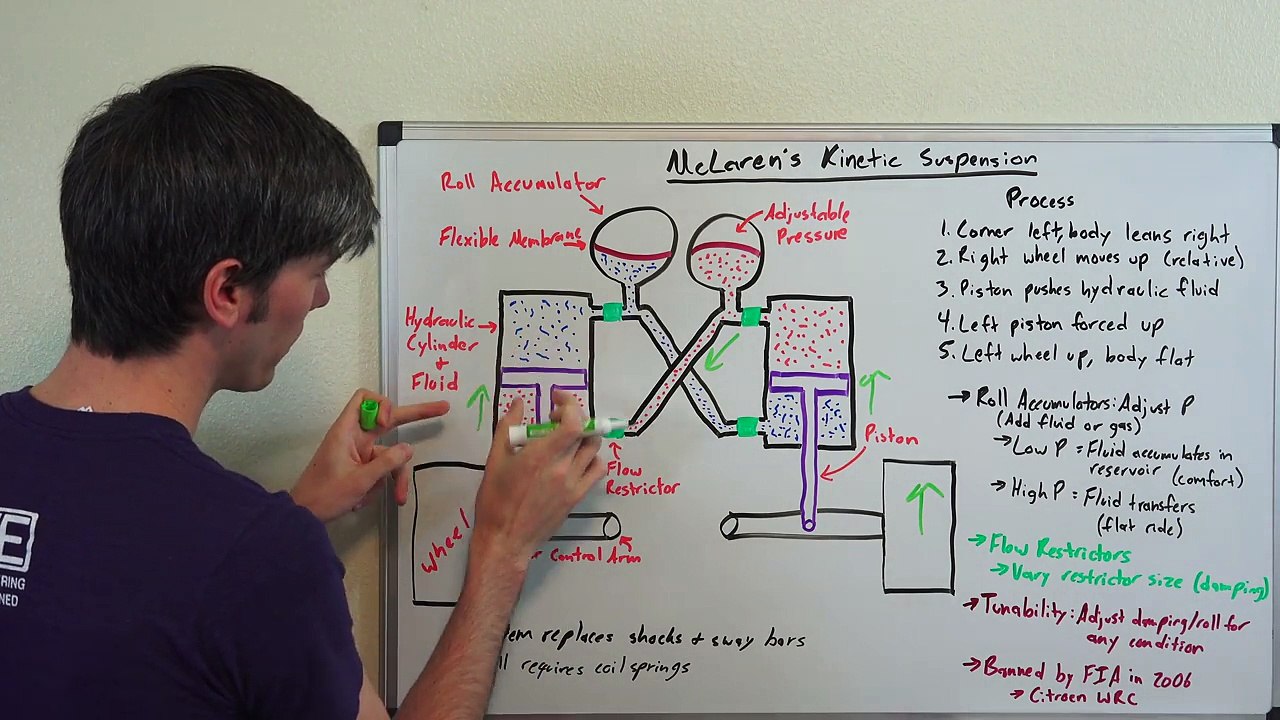 McLaren's Kinetic Suspension
Roll Accumulator
Flexible Membrane
Adjustable
Pressure
Hydraulic
Cylinder
+
Fluid
Flow
Restrictor
Piston
Wheel
Control Arm
replaces shocks + sway bars
requires coil springs
Process
1. Corner left, body leans right
2. Right wheel moves up (relative)
3. Piston pushes hydraulic fluid
4. Left piston forced up
5. Left wheel up, body flat
→ Roll Accumulators: Adjust P
(Add fluid or gas)
→ Low P = Fluid accumulates in
reservoir (comfort)
→ High P = Fluid transfers
(flat ride)
→ Flow Restrictors
→ Vary restrictor size (damping)
→ Tunability: Adjust damping/roll for
any condition
→ Banned by FIA in 2006
→ Citroen WRC
E
RING
NED